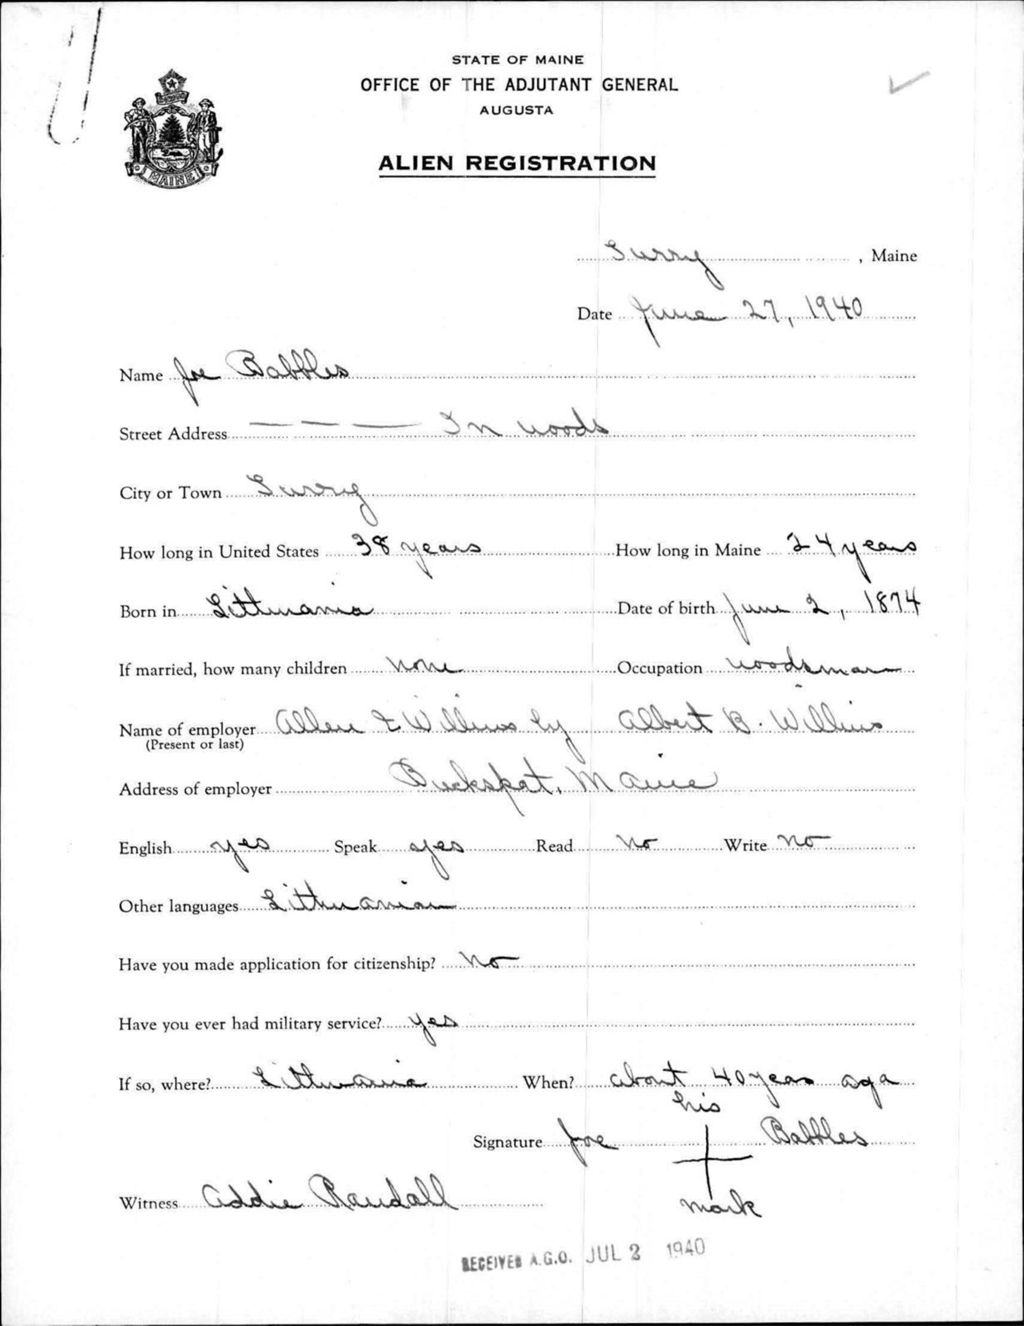 STATE OF MAINE
OFFICE OF THE ADJUTANT GENERAL
AUGUSTA
ALIEN REGISTRATION
MAINE
Surry, Maine
Date June 27, 1940
Name Joe Babbles
Street Address — — — In woods
City or Town Surry
How long in United States 38 years How long in Maine 24 years
Born in Lithuania Date of birth June 2, 1874
If married, how many children none Occupation woodsman
Name of employer Allen & Willins by Albert B. Willins
(Present or last)
Address of employer Buckspot, Maine
English yes Speak yes Read No Write No
Other languages Lithuanian
Have you made application for citizenship? No
Have you ever had military service? yes
If so, where? Lithuania When? about 40 years ago
his
Signature Joe + Babbles
Witness Addie Randall mark
RECEIVED A.G.O. JUL 2 1940